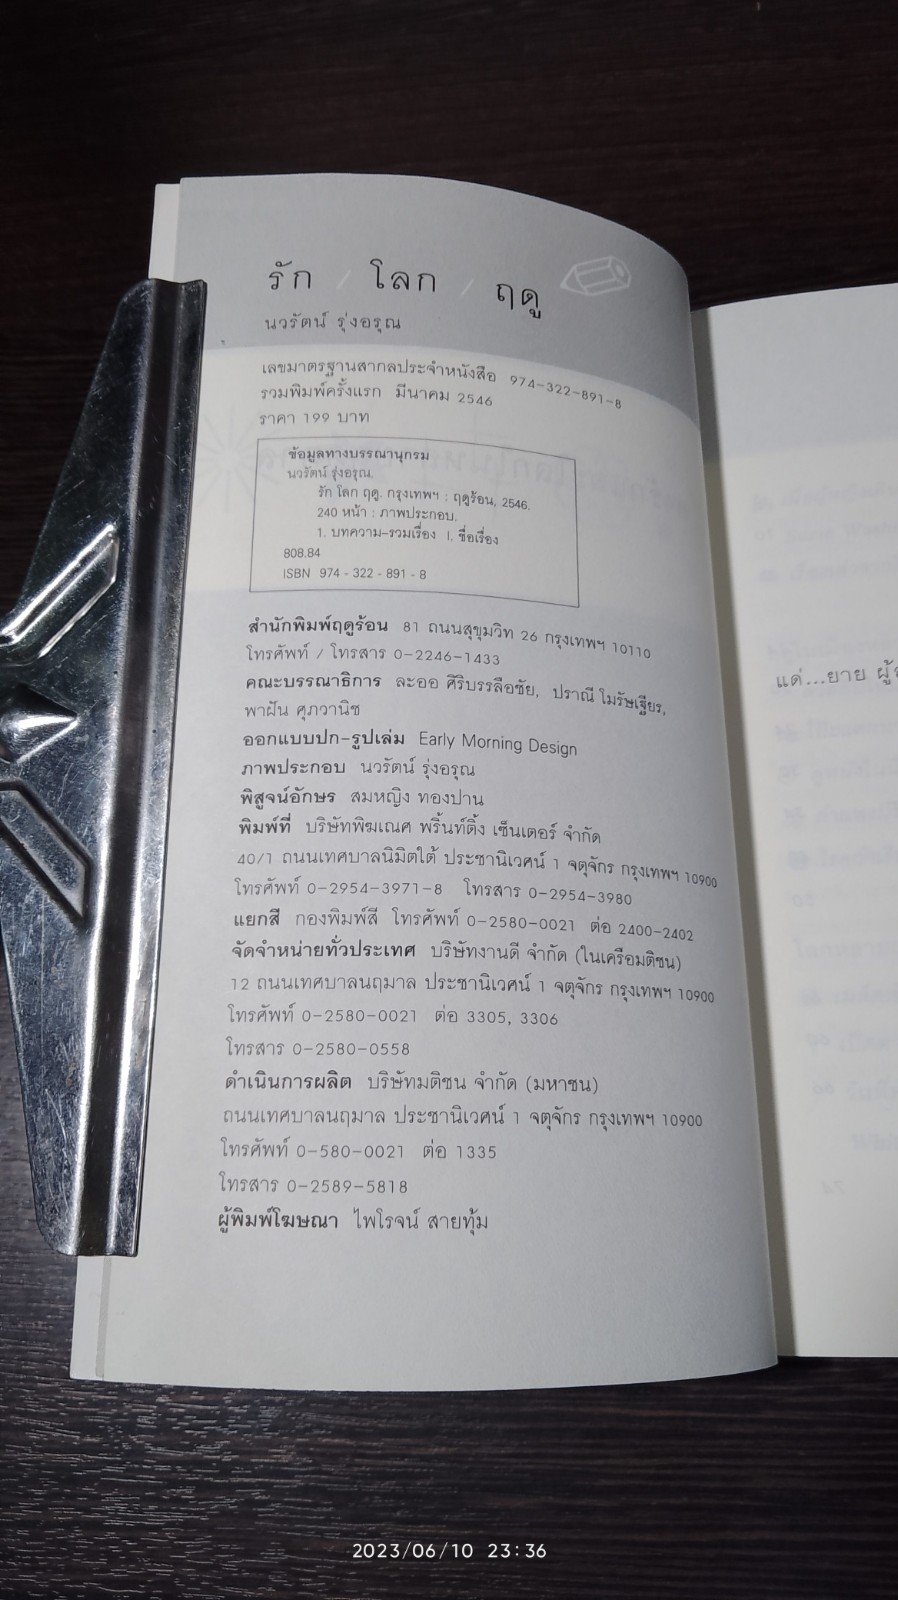 รัก / โลก / ฤดู
นวรัตน์ รุ่งอรุณ
เลขมาตรฐานสากลประจำหนังสือ 974-322-891-8
รวมพิมพ์ครั้งแรก มีนาคม 2546
ราคา 199 บาท
ข้อมูลทางบรรณานุกรม
นวรัตน์ รุ่งอรุณ.
รัก โลก ฤดู. กรุงเทพฯ : ฤดูร้อน, 2546.
240 หน้า : ภาพประกอบ.
1. บทความ-รวมเรื่อง I. ชื่อเรื่อง
808.84
ISBN 974 - 322 - 891 - 8
สำนักพิมพ์ฤดูร้อน 81 ถนนสุขุมวิท 26 กรุงเทพฯ 10110
โทรศัพท์ / โทรสาร 0-2246-1433
คณะบรรณาธิการ ละออ ศิริบรรลือชัย, ปราณี โมรัษเฐียร,
พาฝัน ศุภวานิช
ออกแบบปก-รูปเล่ม Early Morning Design
ภาพประกอบ นวรัตน์ รุ่งอรุณ
พิสูจน์อักษร สมหญิง ทองปาน
พิมพ์ที่ บริษัทพิฆเณศ พริ้นท์ติ้ง เซ็นเตอร์ จำกัด
40/1 ถนนเทศบาลนิมิตใต้ ประชานิเวศน์ 1 จตุจักร กรุงเทพฯ 10900
โทรศัพท์ 0-2954-3971-8 โทรสาร 0-2954-3980
แยกสี กองพิมพ์สี โทรศัพท์ 0-2580-0021 ต่อ 2400-2402
จัดจำหน่ายทั่วประเทศ บริษัทงานดี จำกัด (ในเครือมติชน)
12 ถนนเทศบาลนฤมาล ประชานิเวศน์ 1 จตุจักร กรุงเทพฯ 10900
โทรศัพท์ 0-2580-0021 ต่อ 3305, 3306
โทรสาร 0-2580-0558
ดำเนินการผลิต บริษัทมติชน จำกัด (มหาชน)
ถนนเทศบาลนฤมาล ประชานิเวศน์ 1 จตุจักร กรุงเทพฯ 10900
โทรศัพท์ 0-580-0021 ต่อ 1335
โทรสาร 0-2589-5818
ผู้พิมพ์โฆษณา ไพโรจน์ สายทุ้ม
แด่...ยาย
2023/06/10 23:36